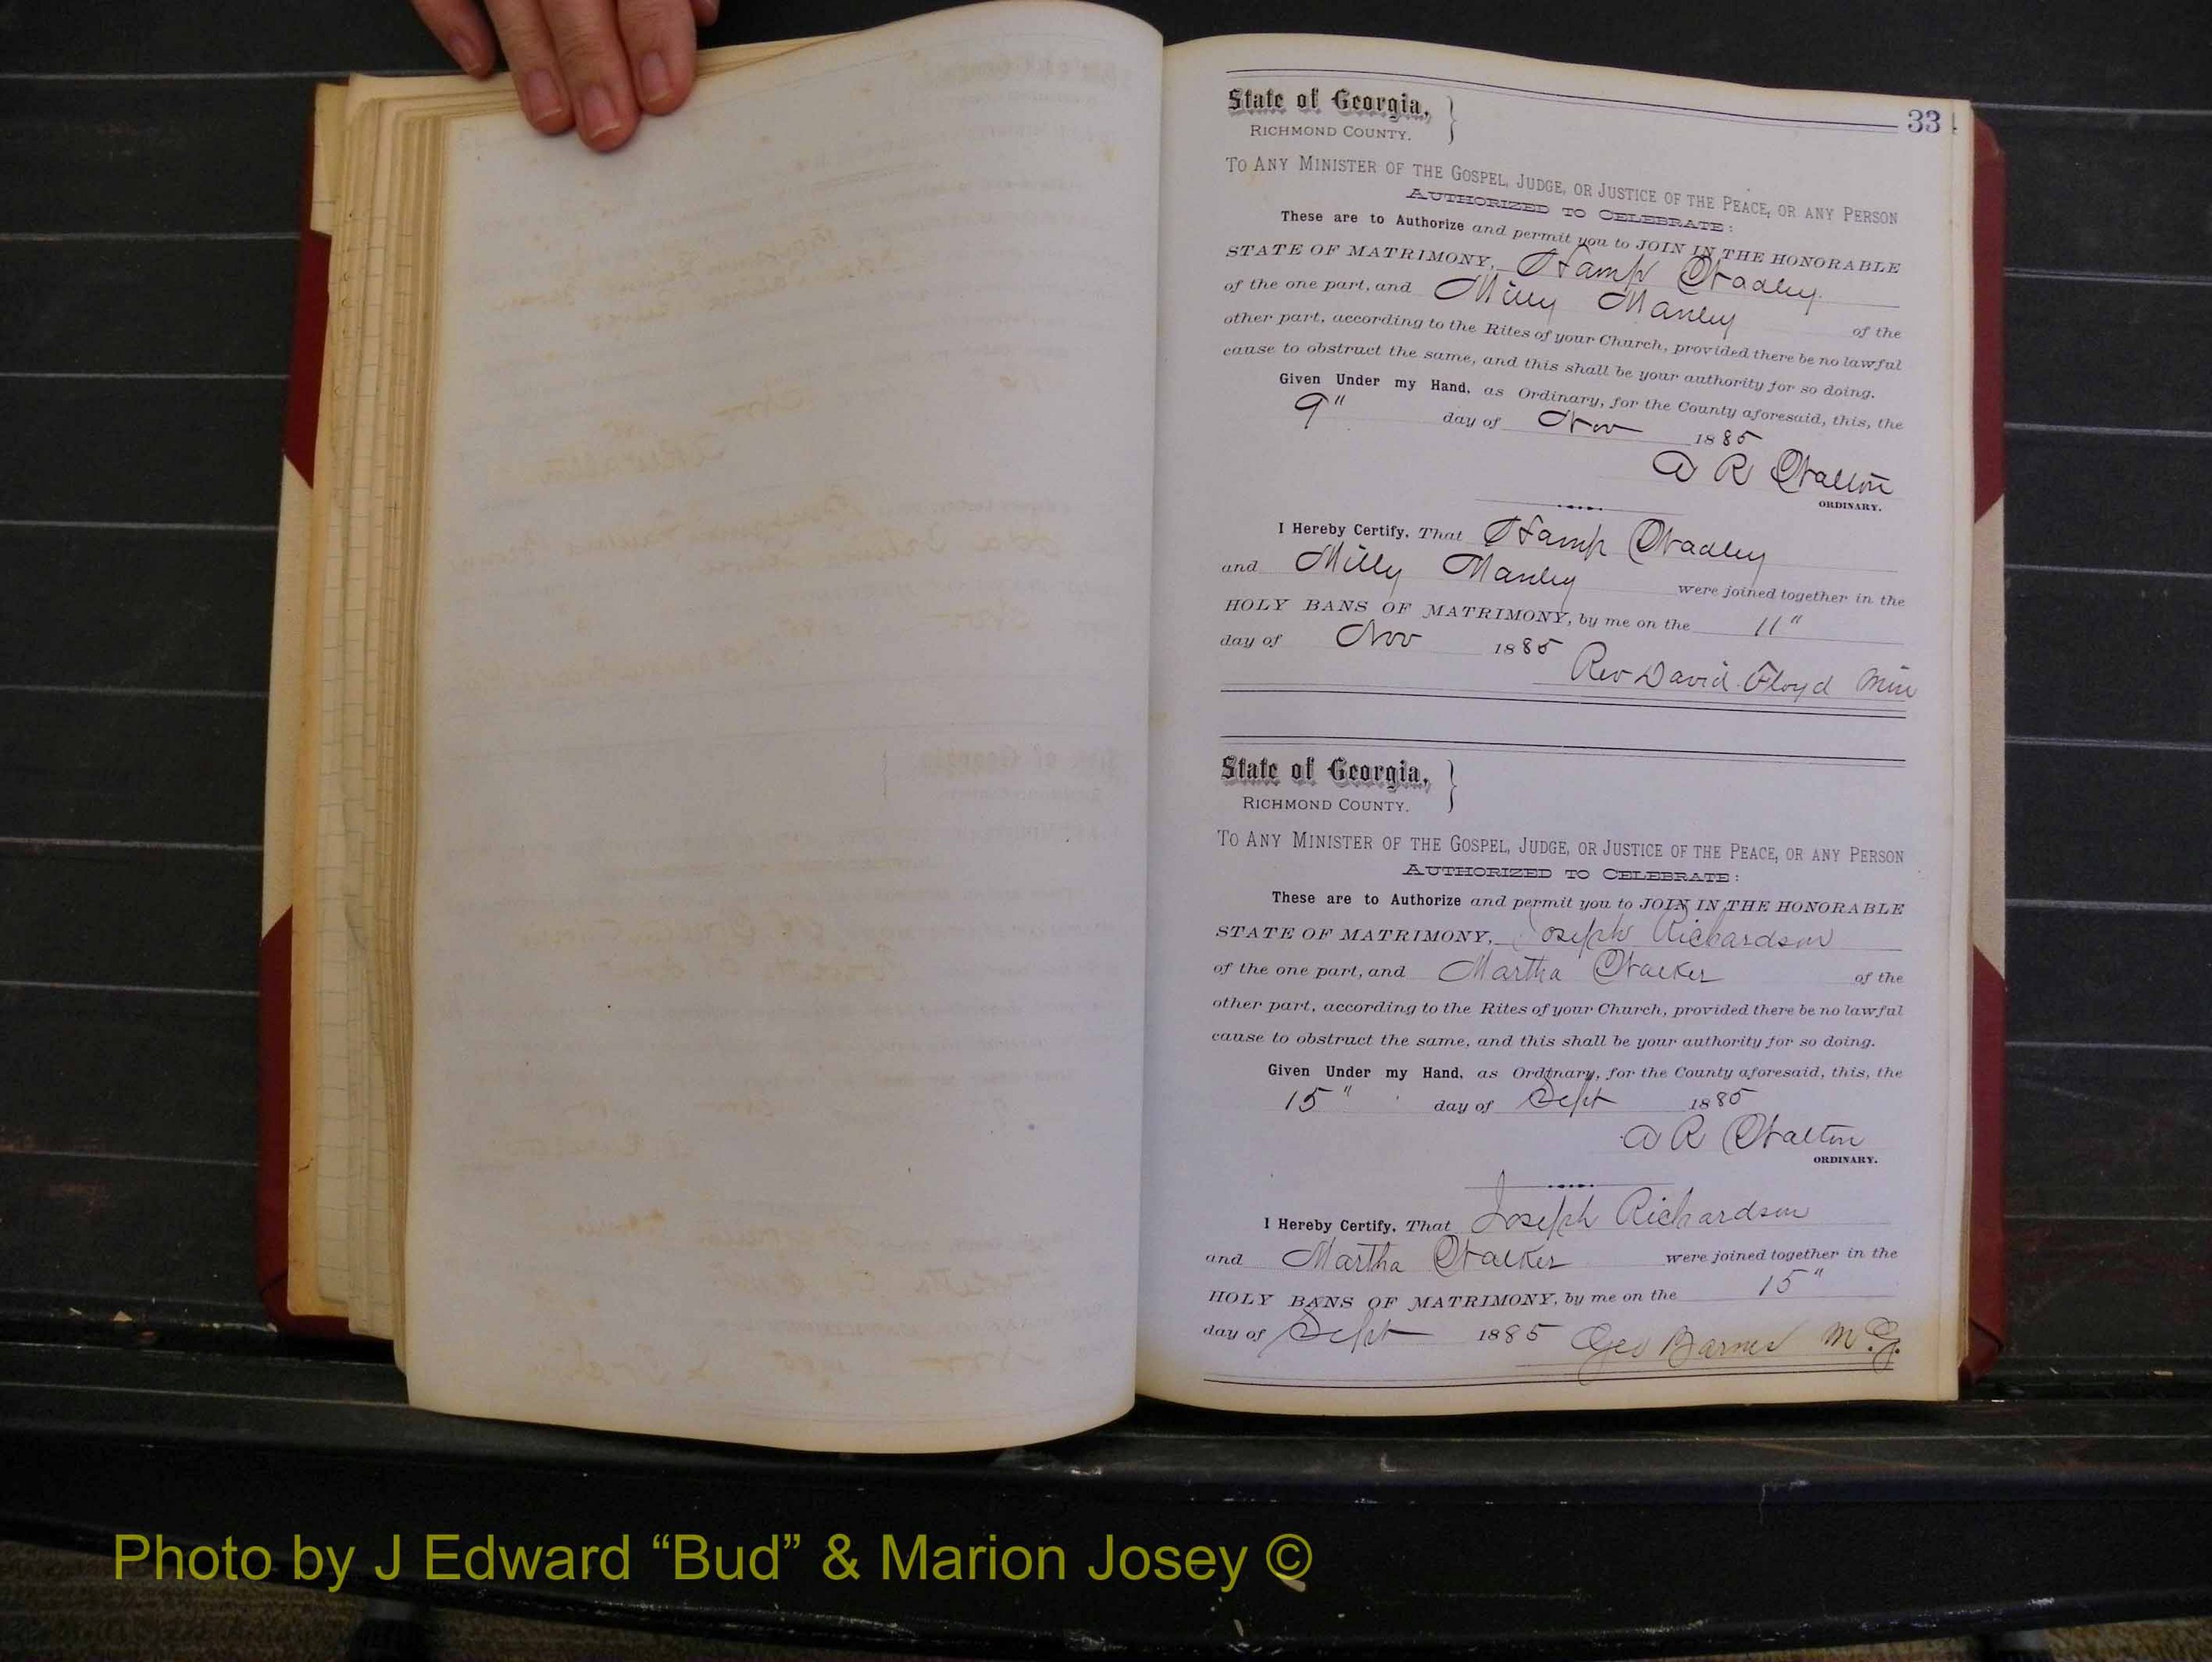 33
State of Georgia,
RICHMOND COUNTY.
TO ANY MINISTER OF THE GOSPEL, JUDGE, OR JUSTICE OF THE PEACE, OR ANY PERSON
AUTHORIZED TO CELEBRATE:
These are to Authorize and permit you to JOIN IN THE HONORABLE
STATE OF MATRIMONY, Hamp Wadley
of the one part, and Milly Manley of the
other part, according to the Rites of your Church, provided there be no lawful
cause to obstruct the same, and this shall be your authority for so doing.
Given Under my Hand, as Ordinary, for the County aforesaid, this, the
9" day of Nov 1885
A R Walton
ORDINARY.
I Hereby Certify, That Hamp Wadley
and Milly Manley were joined together in the
HOLY BANS OF MATRIMONY, by me on the 11"
day of Nov 1885
Rev David Floyd Min
State of Georgia,
RICHMOND COUNTY.
TO ANY MINISTER OF THE GOSPEL, JUDGE, OR JUSTICE OF THE PEACE, OR ANY PERSON
AUTHORIZED TO CELEBRATE:
These are to Authorize and permit you to JOIN IN THE HONORABLE
STATE OF MATRIMONY, Joseph Richardson
of the one part, and Martha Walker of the
other part, according to the Rites of your Church, provided there be no lawful
cause to obstruct the same, and this shall be your authority for so doing.
Given Under my Hand, as Ordinary, for the County aforesaid, this, the
15" day of Sept 1885
A R Walton
ORDINARY.
I Hereby Certify, That Joseph Richardson
and Martha Walker were joined together in the
HOLY BANS OF MATRIMONY, by me on the 15"
day of Sept 1885 Geo Barnes M.G.
Photo by J Edward “Bud” & Marion Josey ©